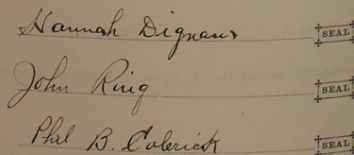 Hannah Dignan SEAL
John Ring SEAL
Phil B. Colerick SEAL